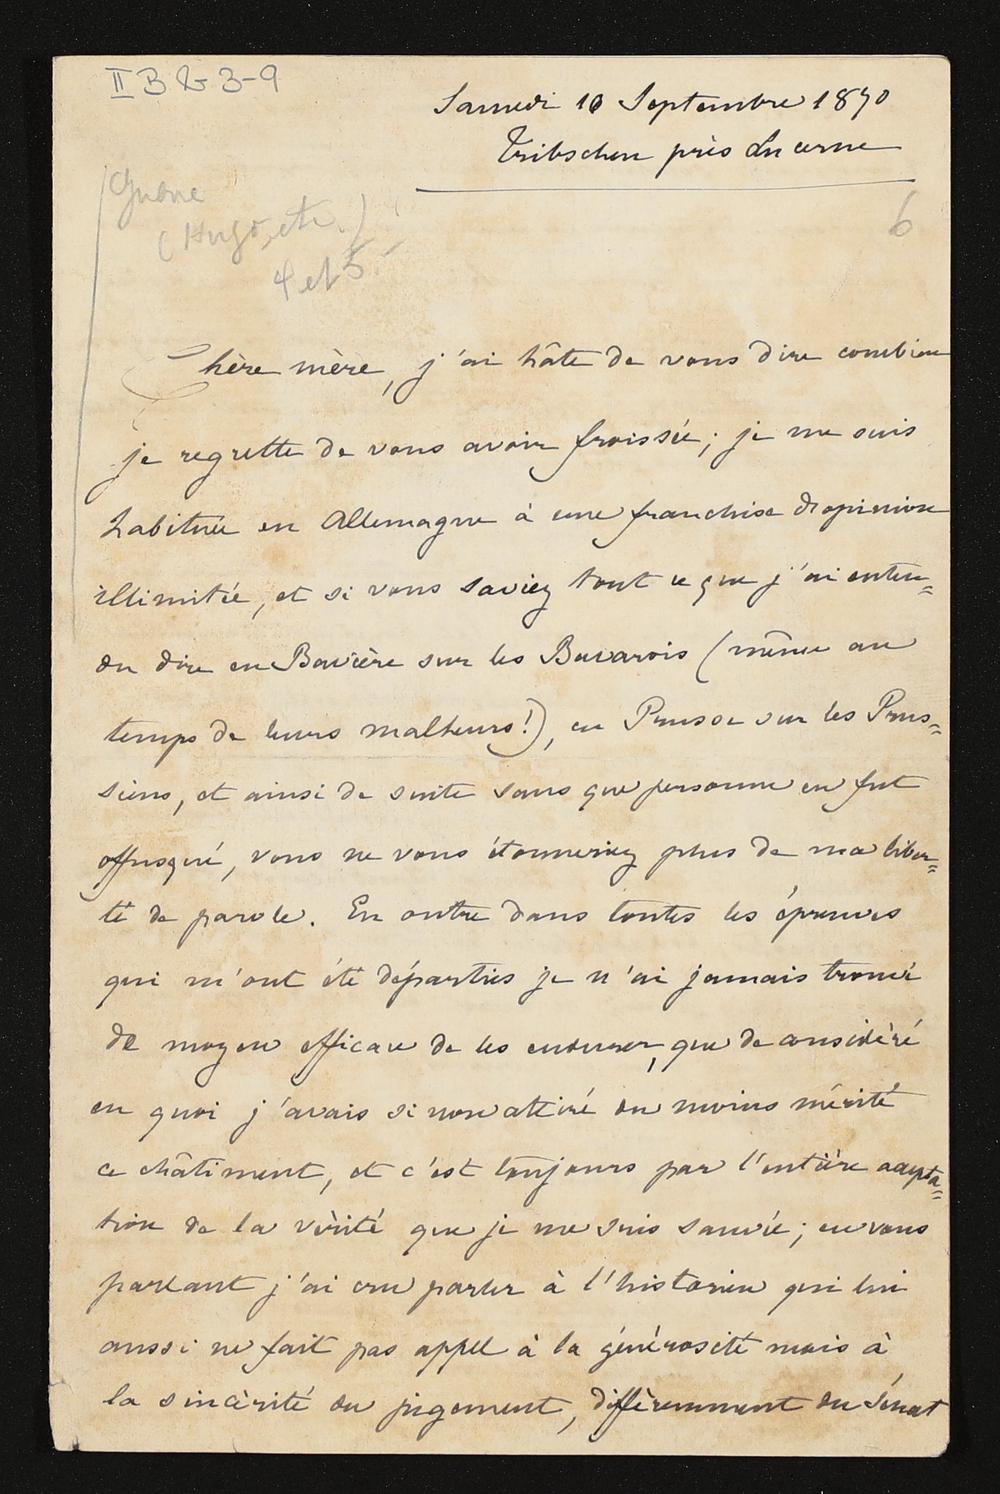 II B 2-3-9
Samedi 10 Septembre 1870
Tribschen près Lucerne
6
(Hugo, etc.)
4 et 5
Chère mère, j'ai hâte de vous dire combien
je regrette de vous avoir froissée; je me suis
habituée en Allemagne à une franchise d'opinion
illimitée, et si vous saviez tout ce que j'ai enten=
du dire en Bavière sur les Bavarois (même au
temps de leurs malheurs!), en Prusse sur les Prus=
siens, et ainsi de suite sans que personne en fut
offusqué, vous ne vous étonneriez plus de ma liber=
té de parole. En outre dans toutes les épreuves
qui m'ont été départies je n'ai jamais trouvé
de moyen efficace de les endurer, que de considéré
en quoi j'avais si non attiré du moins mérité
ce châtiment, et c'est toujours par l'entière accepta=
tion de la vérité que je me suis sauvée; en vous
parlant j'ai cru parler à l'historien qui lui
aussi ne fait pas appel à la générosité mais à
la sincérité du jugement, différemment du Sénat